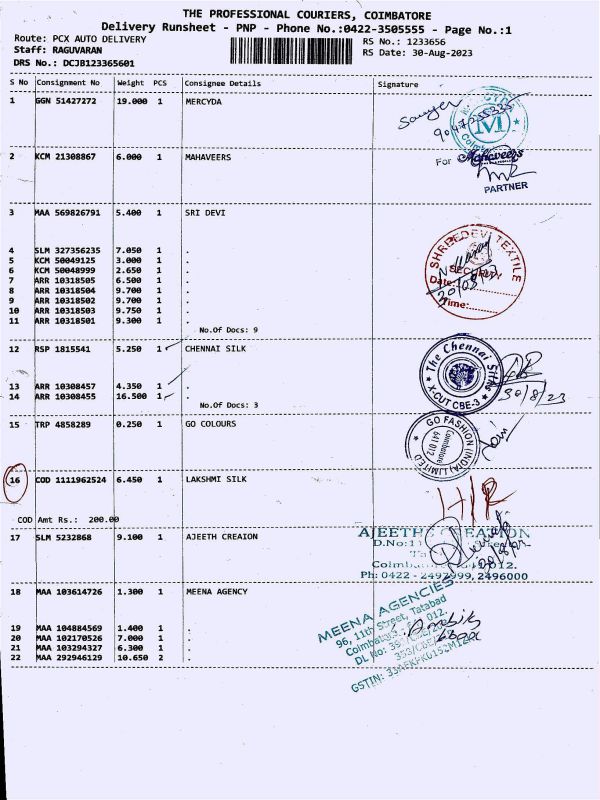 THE PROFESSIONAL COURIERS, COIMBATORE
Delivery Runsheet - PNP - Phone No.:0422-3505555 - Page No.:1
Route: PCX AUTO DELIVERY
Staff: RAGUVARAN
DRS No.: DCJB123365601
RS No.: 1233656
RS Date: 30-Aug-2023
S No Consignment No Weight PCS Consignee Details Signature
1 GGN 51427272 19.000 1 MERCYDA
M
2 KCM 21308867 6.000 1 MAHAVEERS
For Mahaveers
PARTNER
3 MAA 569826791 5.400 1 SRI DEVI
SHREEDEVI TEXTILE
SECURITY
Date:
Time:
4 SLM 327356235 7.050 1 .
5 KCM 50049125 3.000 1 .
6 KCM 50048999 2.650 1 .
7 ARR 10318505 6.500 1 .
8 ARR 10318504 9.700 1 .
9 ARR 10318502 9.700 1 .
10 ARR 10318503 9.750 1 .
11 ARR 10318501 9.300 1 .
No.Of Docs: 9
12 RSP 1815541 5.250 1 CHENNAI SILK
The Chennai Silks
X-CUT CBE-3
30/8/23
13 ARR 10308457 4.350 1 .
14 ARR 10308455 16.500 1 .
No.Of Docs: 3
15 TRP 4858289 0.250 1 GO COLOURS
GO FASHION (INDIA) LIMITED
Coimbatore
641 012
16 COD 1111962524 6.450 1 LAKSHMI SILK
COD Amt Rs.: 200.00
17 SLM 5232868 9.100 1 AJEETH CREAION
AJEETH CREATION
D.No:11
Ph: 0422 - 2492999, 2496000
18 MAA 103614726 1.300 1 MEENA AGENCY
MEENA AGENCIES
96, 11th Street, Tatabad
19 MAA 104884569 1.400 1 .
20 MAA 102170526 7.000 1 .
21 MAA 103294327 6.300 1 .
22 MAA 292946129 10.650 2 .